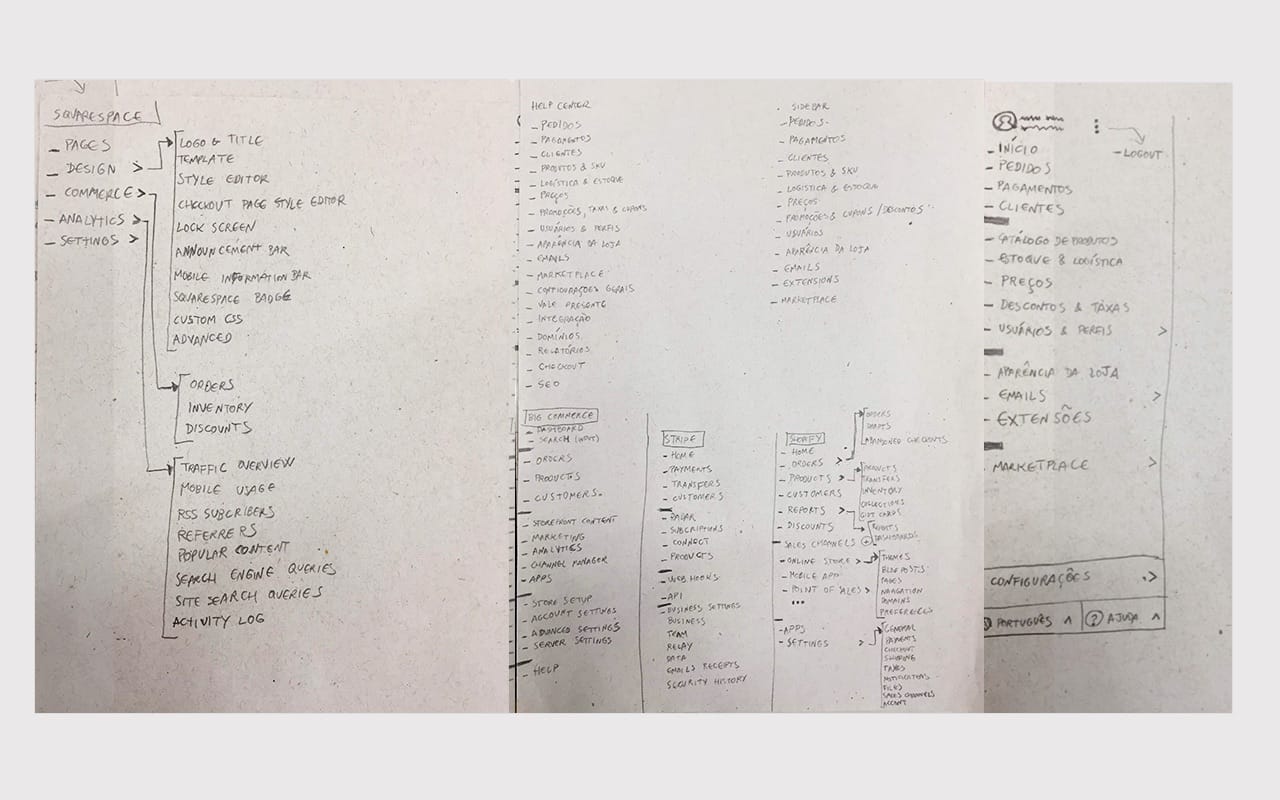 SQUARESPACE
- PAGES
- DESIGN >
- COMMERCE >
- ANALYTICS >
- SETTINGS >
LOGO & TITLE
TEMPLATE
STYLE EDITOR
CHECKOUT PAGE STYLE EDITOR
LOCK SCREEN
ANNOUNCEMENT BAR
MOBILE INFORMATION BAR
SQUARESPACE BADGE
CUSTOM CSS
ADVANCED
ORDERS
INVENTORY
DISCOUNTS
TRAFFIC OVERVIEW
MOBILE USAGE
RSS SUBCRIBERS
REFERRERS
POPULAR CONTENT
SEARCH ENGINE QUERIES
SITE SEARCH QUERIES
ACTIVITY LOG
HELP CENTER
- PEDIDOS
- PAGAMENTOS
- CLIENTES
- PRODUTOS & SKU
- LOGÍSTICA & ESTOQUE
- PREÇOS
- PROMOÇÕES, TAXAS & CUPONS
- USUÁRIOS & PERFIS
- APARÊNCIA DA LOJA
- EMAILS
- MARKETPLACE
- CONFIGURAÇÕES GERAIS
- VALE PRESENTE
- INTEGRAÇÃO
- DOMÍNIOS
- RELATÓRIOS
- CHECKOUT
- SEO
SIDEBAR
- PEDIDOS
- PAGAMENTOS
- CLIENTES
- PRODUTOS & SKU
- LOGISTICA & ESTOQUE
- PREÇOS
- PROMOÇÕES & CUPONS / DESCONTOS
- USUÁRIOS
- APARÊNCIA DA LOJA
- EMAILS
- EXTENSIONS
- MARKETPLACE
BIG COMMERCE
- DASHBOARD
- SEARCH (INPUT)
- ORDERS
- PRODUCTS
- CUSTOMERS
- STOREFRONT CONTENT
- MARKETING
- ANALYTICS
- CHANNEL MANAGER
- APPS
- STORE SETUP
- ACCOUNT SETTINGS
- ADVANCED SETTINGS
- SERVER SETTINGS
- HELP
STRIPE
- HOME
- PAYMENTS
- TRANSFERS
- CUSTOMERS
- RADAR
- SUBSCRIPTIONS
- CONNECT
- PRODUCTS
- WEB HOOKS
- API
- BUSINESS SETTINGS
BUSINESS
TEAM
RELAY
DATA
EMAILS RECEIPTS
SECURITY HISTORY
SHOPIFY
- HOME
- ORDERS >
- PRODUCTS >
- CUSTOMERS
- REPORTS >
- DISCOUNTS
SALES CHANNELS +
- ONLINE STORE >
- MOBILE APP
- POINT OF SALES >
...
- APPS
- SETTINGS >
ORDERS
DRAFTS
ABANDONED CHECKOUTS
PRODUCTS
TRANSFERS
INVENTORY
COLLECTIONS
GIFT CARDS
DASHBOARDS
THEMES
BLOG POSTS
PAGES
NAVIGATION
DOMAINS
PREFERENCES
GENERAL
PAYMENTS
CHECKOUT
SHIPPING
TAXES
NOTIFICATIONS
FILES
SALES CHANNELS
ACCOUNT
- LOGOUT
- INÍCIO
- PEDIDOS
- PAGAMENTOS
- CLIENTES
- CATÁLOGO DE PRODUTOS
- ESTOQUE & LOGÍSTICA
- PREÇOS
- DESCONTOS & TAXAS
- USUÁRIOS & PERFIS >
- APARÊNCIA DA LOJA
- EMAILS >
- EXTENSÕES
- MARKETPLACE >
CONFIGURAÇÕES >
PORTUGUÊS ^
? AJUDA ^